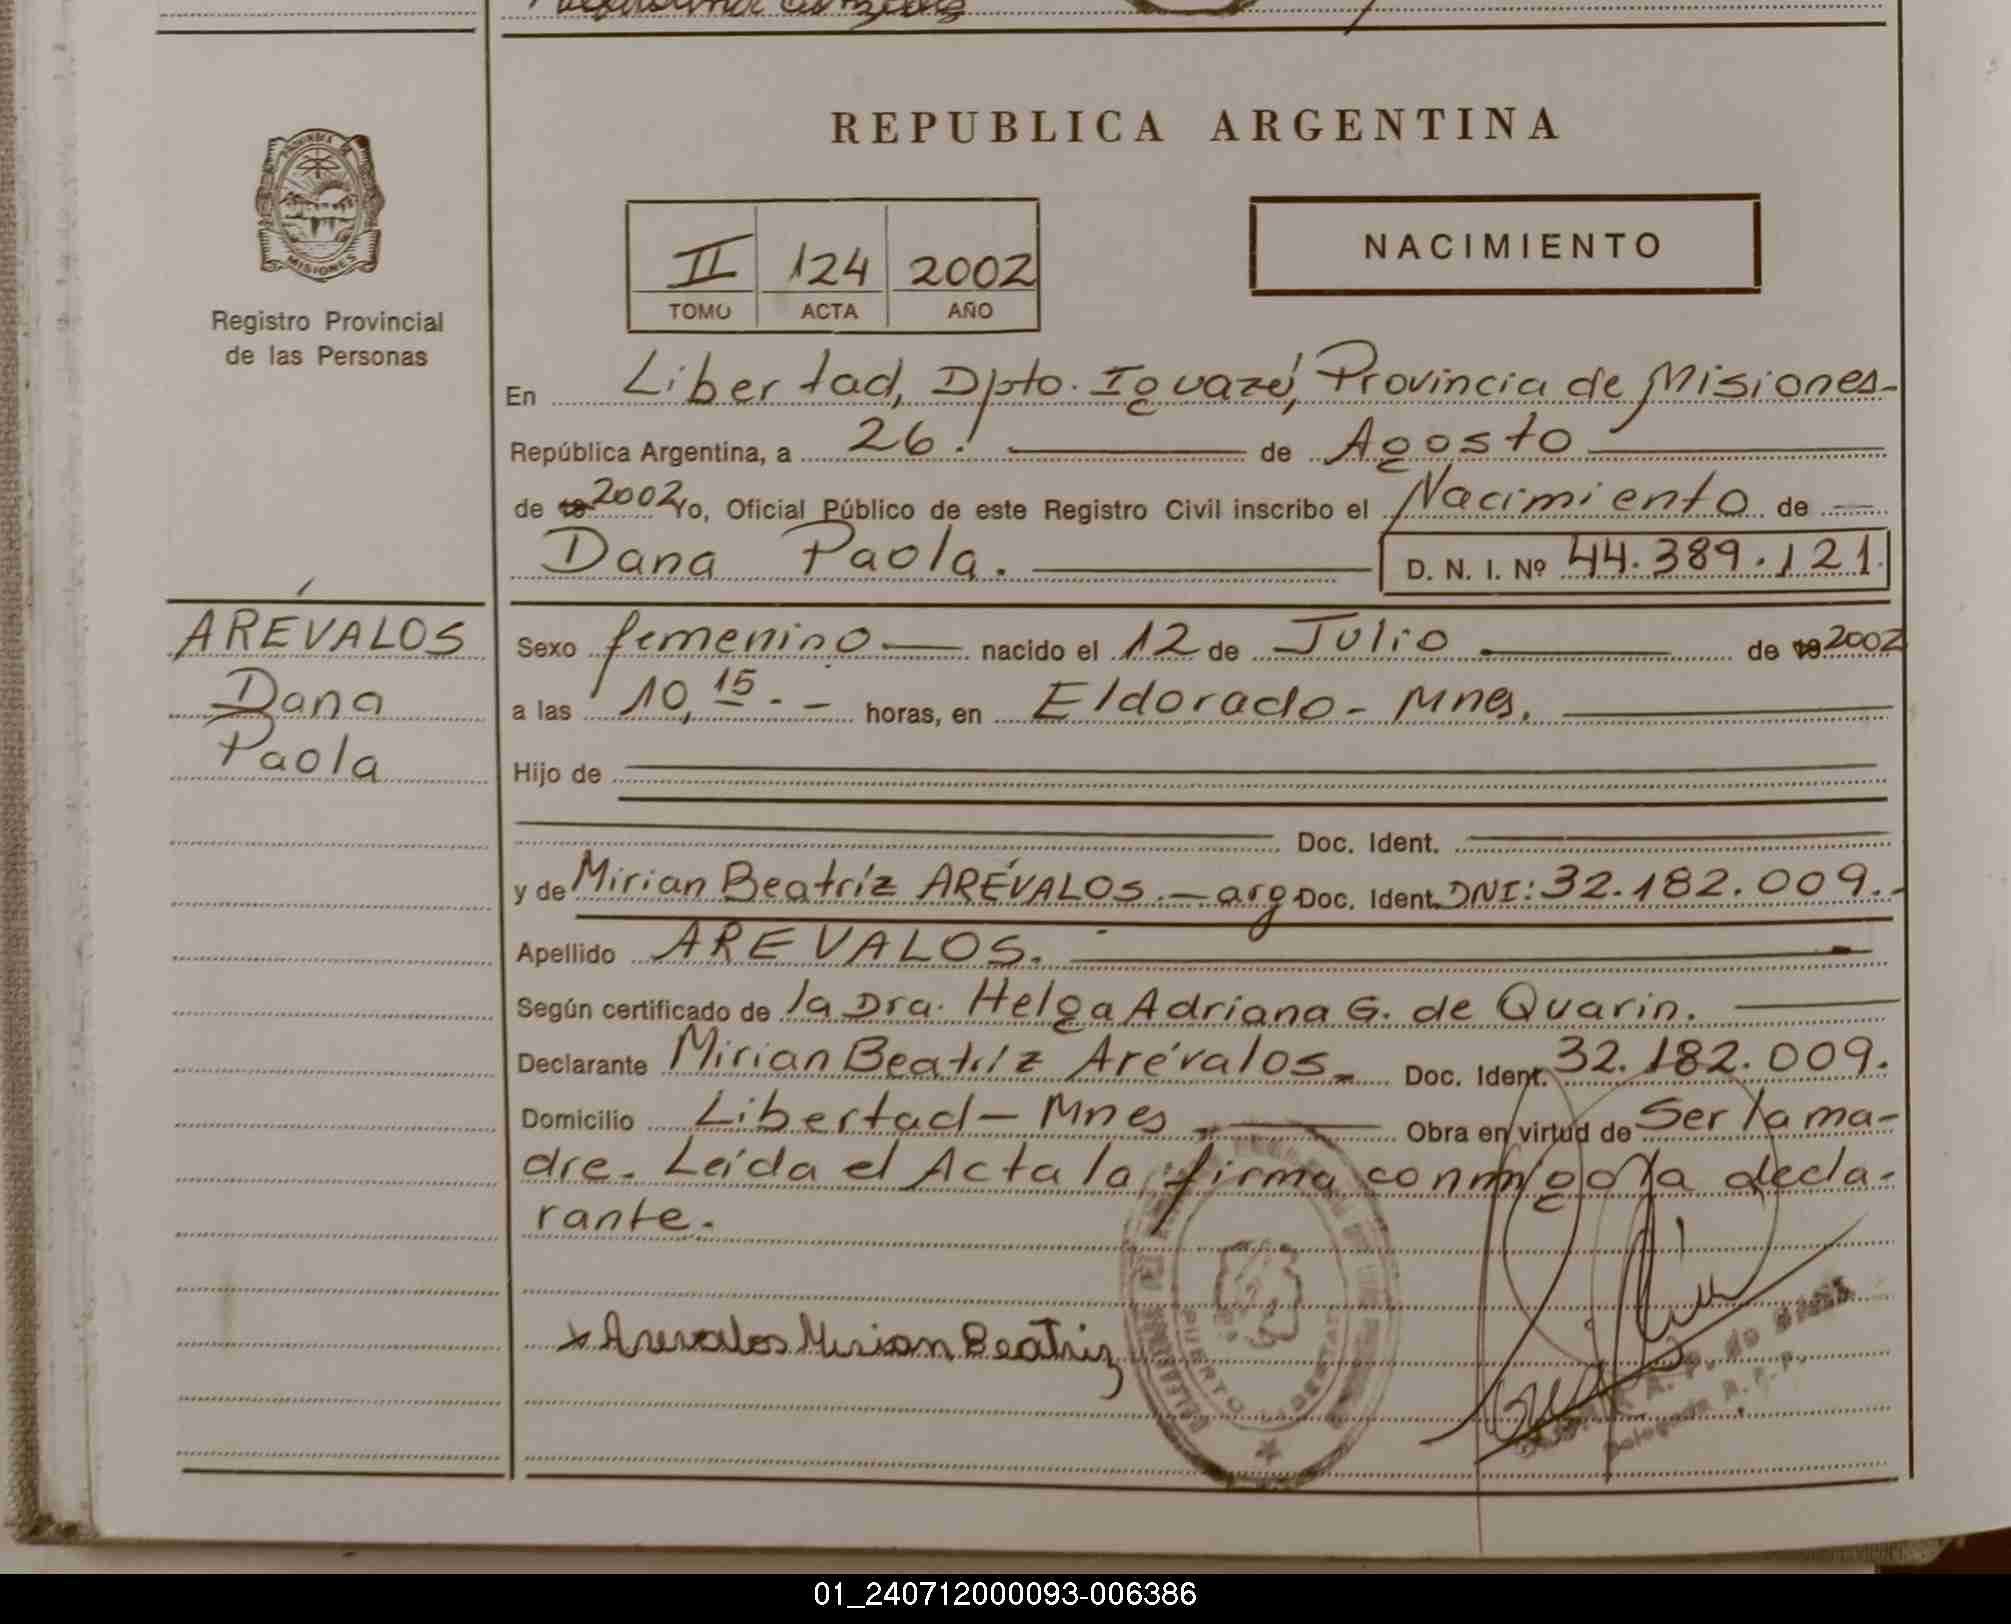 PROVINCIA DE
MISIONES
Registro Provincial
de las Personas
REPUBLICA ARGENTINA
II 124 2002
TOMO ACTA AÑO
NACIMIENTO
En Libertad, Dpto. Iguazú, Provincia de Misiones-
República Argentina, a 26. de Agosto
de 19 2002 Yo, Oficial Público de este Registro Civil inscribo el Nacimiento de
Dana Paola. D. N. I. Nº 44.389.121.
ARÉVALOS
Dana
Paola
Sexo femenino nacido el 12 de Julio de 19 2002
a las 10,15.- horas, en Eldorado - Mnes.
Hijo de
Doc. Ident.
y de Mirian Beatríz ARÉVALOS.- arg Doc. Ident. DNI: 32.182.009.-
Apellido AREVALOS.
Según certificado de la Dra. Helga Adriana G. de Quarin.
Declarante Mirian Beatríz Arévalos.- Doc. Ident. 32.182.009.
Domicilio Libertad - Mnes Obra en virtud de Ser la ma-
dre. Leída el Acta la firma conmigo la decla-
rante.
x Arevalos Mirian Beatriz
PUERTO LIBERTAD
Delegada R.P.P.
01_240712000093-006386